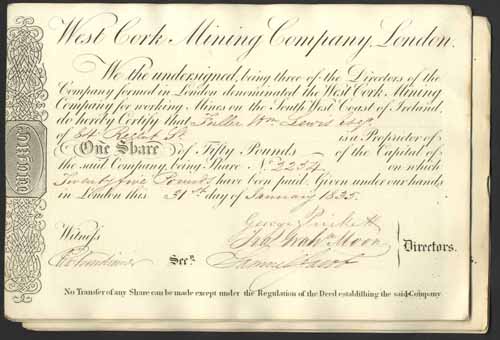 West Cork Mining Company, London.
We the undersigned, being three of the Directors of the
Company formed in London denominated the West Cork Mining
Company for working Mines on the South West Coast of Ireland,
do hereby Certify that Fuller Wm. Lewis Esqr.
of 84 Regent St. is a Proprietor of
One Share of Fifty Pounds of the Capital of
the said Company being Share No. 2254 on which
Twenty five Pounds have been paid. Given under our hands
in London this 31st day of January 1835.
George
Witness Moon
Secy. Samuel Directors.
No Transfer of any Share can be made except under the Regulation of the Deed establishing the said Company